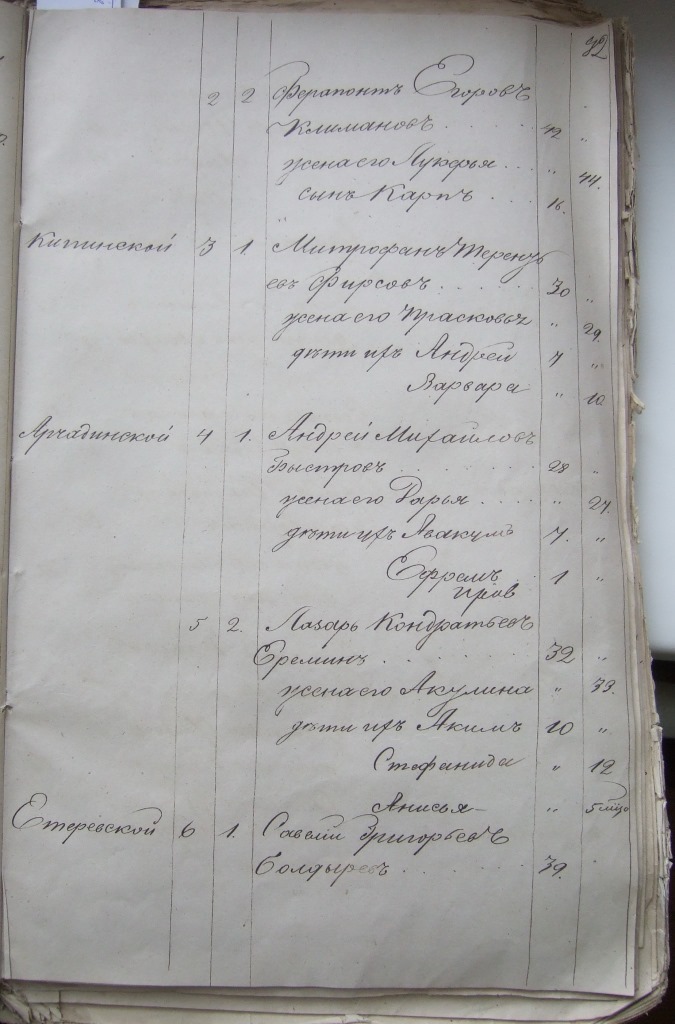 2 2 Ферапонтъ Егоровъ
Климановъ . . . . . 42 "
жена его Лукерья . . . " 44.
сынъ Карпъ . . . 16.
3 1. Митрофанъ Терентъ
евъ Фирсовъ . . . . . . 30 "
жена его Прасковья " 29.
дѣти ихъ Андрей 7 "
Варвара " 10
Арчадинской 4 1. Андрей Михайловъ
Быстровъ . . . . . . . . 28 "
жена его Дарья . . . . "
дѣти ихъ Авакумъ 7. "
Ефремъ . 1 "
5 2. Лазарь Кондратьевъ
Ереминъ . . . . . . . . 32 "
жена его Акулина " 33.
дѣти ихъ Акимъ 10 "
Стефанида " 12
Анисья "
Етеревской 6 1. Савелій Григорьевъ
Болдыревъ . . . . . . . 39.